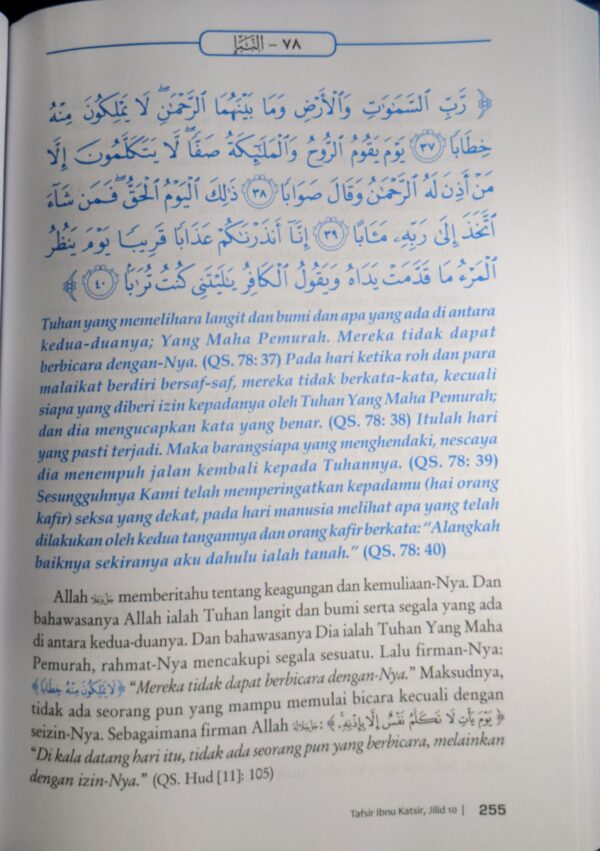 ٧٨ - النَّبَإِ
﴿ رَّبِّ السَّمَٰوَٰتِ وَالْأَرْضِ وَمَا بَيْنَهُمَا الرَّحْمَٰنِ ۖ لَا يَمْلِكُونَ مِنْهُ
خِطَابًا ٣٧ يَوْمَ يَقُومُ الرُّوحُ وَالْمَلَٰٓئِكَةُ صَفًّا ۖ لَّا يَتَكَلَّمُونَ إِلَّا
مَنْ أَذِنَ لَهُ الرَّحْمَٰنُ وَقَالَ صَوَابًا ٣٨ ذَٰلِكَ الْيَوْمُ الْحَقُّ ۖ فَمَن شَآءَ
اتَّخَذَ إِلَىٰ رَبِّهِۦ مَـَٔابًا ٣٩ إِنَّآ أَنذَرْنَٰكُمْ عَذَابًا قَرِيبًا يَوْمَ يَنظُرُ
الْمَرْءُ مَا قَدَّمَتْ يَدَاهُ وَيَقُولُ الْكَافِرُ يَٰلَيْتَنِى كُنتُ تُرَٰبًۢا ٤٠ ﴾
Tuhan yang memelihara langit dan bumi dan apa yang ada di antara
kedua-duanya; Yang Maha Pemurah. Mereka tidak dapat
berbicara dengan-Nya. (QS. 78: 37) Pada hari ketika roh dan para
malaikat berdiri bersaf-saf, mereka tidak berkata-kata, kecuali
siapa yang diberi izin kepadanya oleh Tuhan Yang Maha Pemurah;
dan dia mengucapkan kata yang benar. (QS. 78: 38) Itulah hari
yang pasti terjadi. Maka barangsiapa yang menghendaki, nescaya
dia menempuh jalan kembali kepada Tuhannya. (QS. 78: 39)
Sesungguhnya Kami telah memperingatkan kepadamu (hai orang
kafir) seksa yang dekat, pada hari manusia melihat apa yang telah
dilakukan oleh kedua tangannya dan orang kafir berkata: “Alangkah
baiknya sekiranya aku dahulu ialah tanah.” (QS. 78: 40)
Allah memberitahu tentang keagungan dan kemuliaan-Nya. Dan
bahawasanya Allah ialah Tuhan langit dan bumi serta segala yang ada
di antara kedua-duanya. Dan bahawasanya Dia ialah Tuhan Yang Maha
Pemurah, rahmat-Nya mencakupi segala sesuatu. Lalu firman-Nya:
﴿ لَا يَمْلِكُونَ مِنْهُ خِطَابًا ﴾ “Mereka tidak dapat berbicara dengan-Nya.” Maksudnya,
tidak ada seorang pun yang mampu memulai bicara kecuali dengan
seizin-Nya. Sebagaimana firman Allah : ﴿ يَوْمَ يَأْتِ لَا تَكَلَّمُ نَفْسٌ إِلَّا بِإِذْنِهِۦ ﴾
“Di kala datang hari itu, tidak ada seorang pun yang berbicara, melainkan
dengan izin-Nya.” (QS. Hud [11]: 105)
Tafsir Ibnu Katsir, Jilid 10 | 255